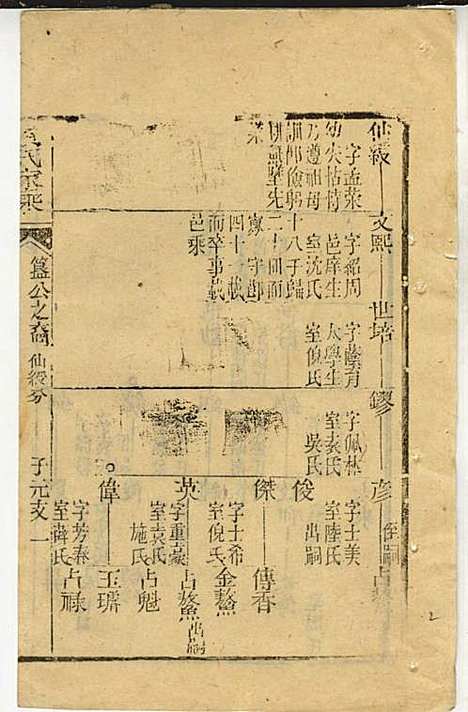 仙綬 文熙 世培 鏐 彥
字孟萊
幼失怙恃
乃遵祖母
訓節儉躬
字紹周
邑庠生
室沈氏
十八于歸
二十四而
寡守節
四十一載
而卒事載
邑乘
字蔭育
太學生
室倪氏
字佩林
室袁氏
吳氏
字士美
室陸氏
俊
出嗣
傑 傳香
字士希
室倪氏
金鰲
英 占鰲 出嗣
字重英
室袁氏
施氏
占魁
偉 玉璸
字芳春
室薛氏
占祿
氏家乘
簋公之裔
仙綬分
子元支
一
2